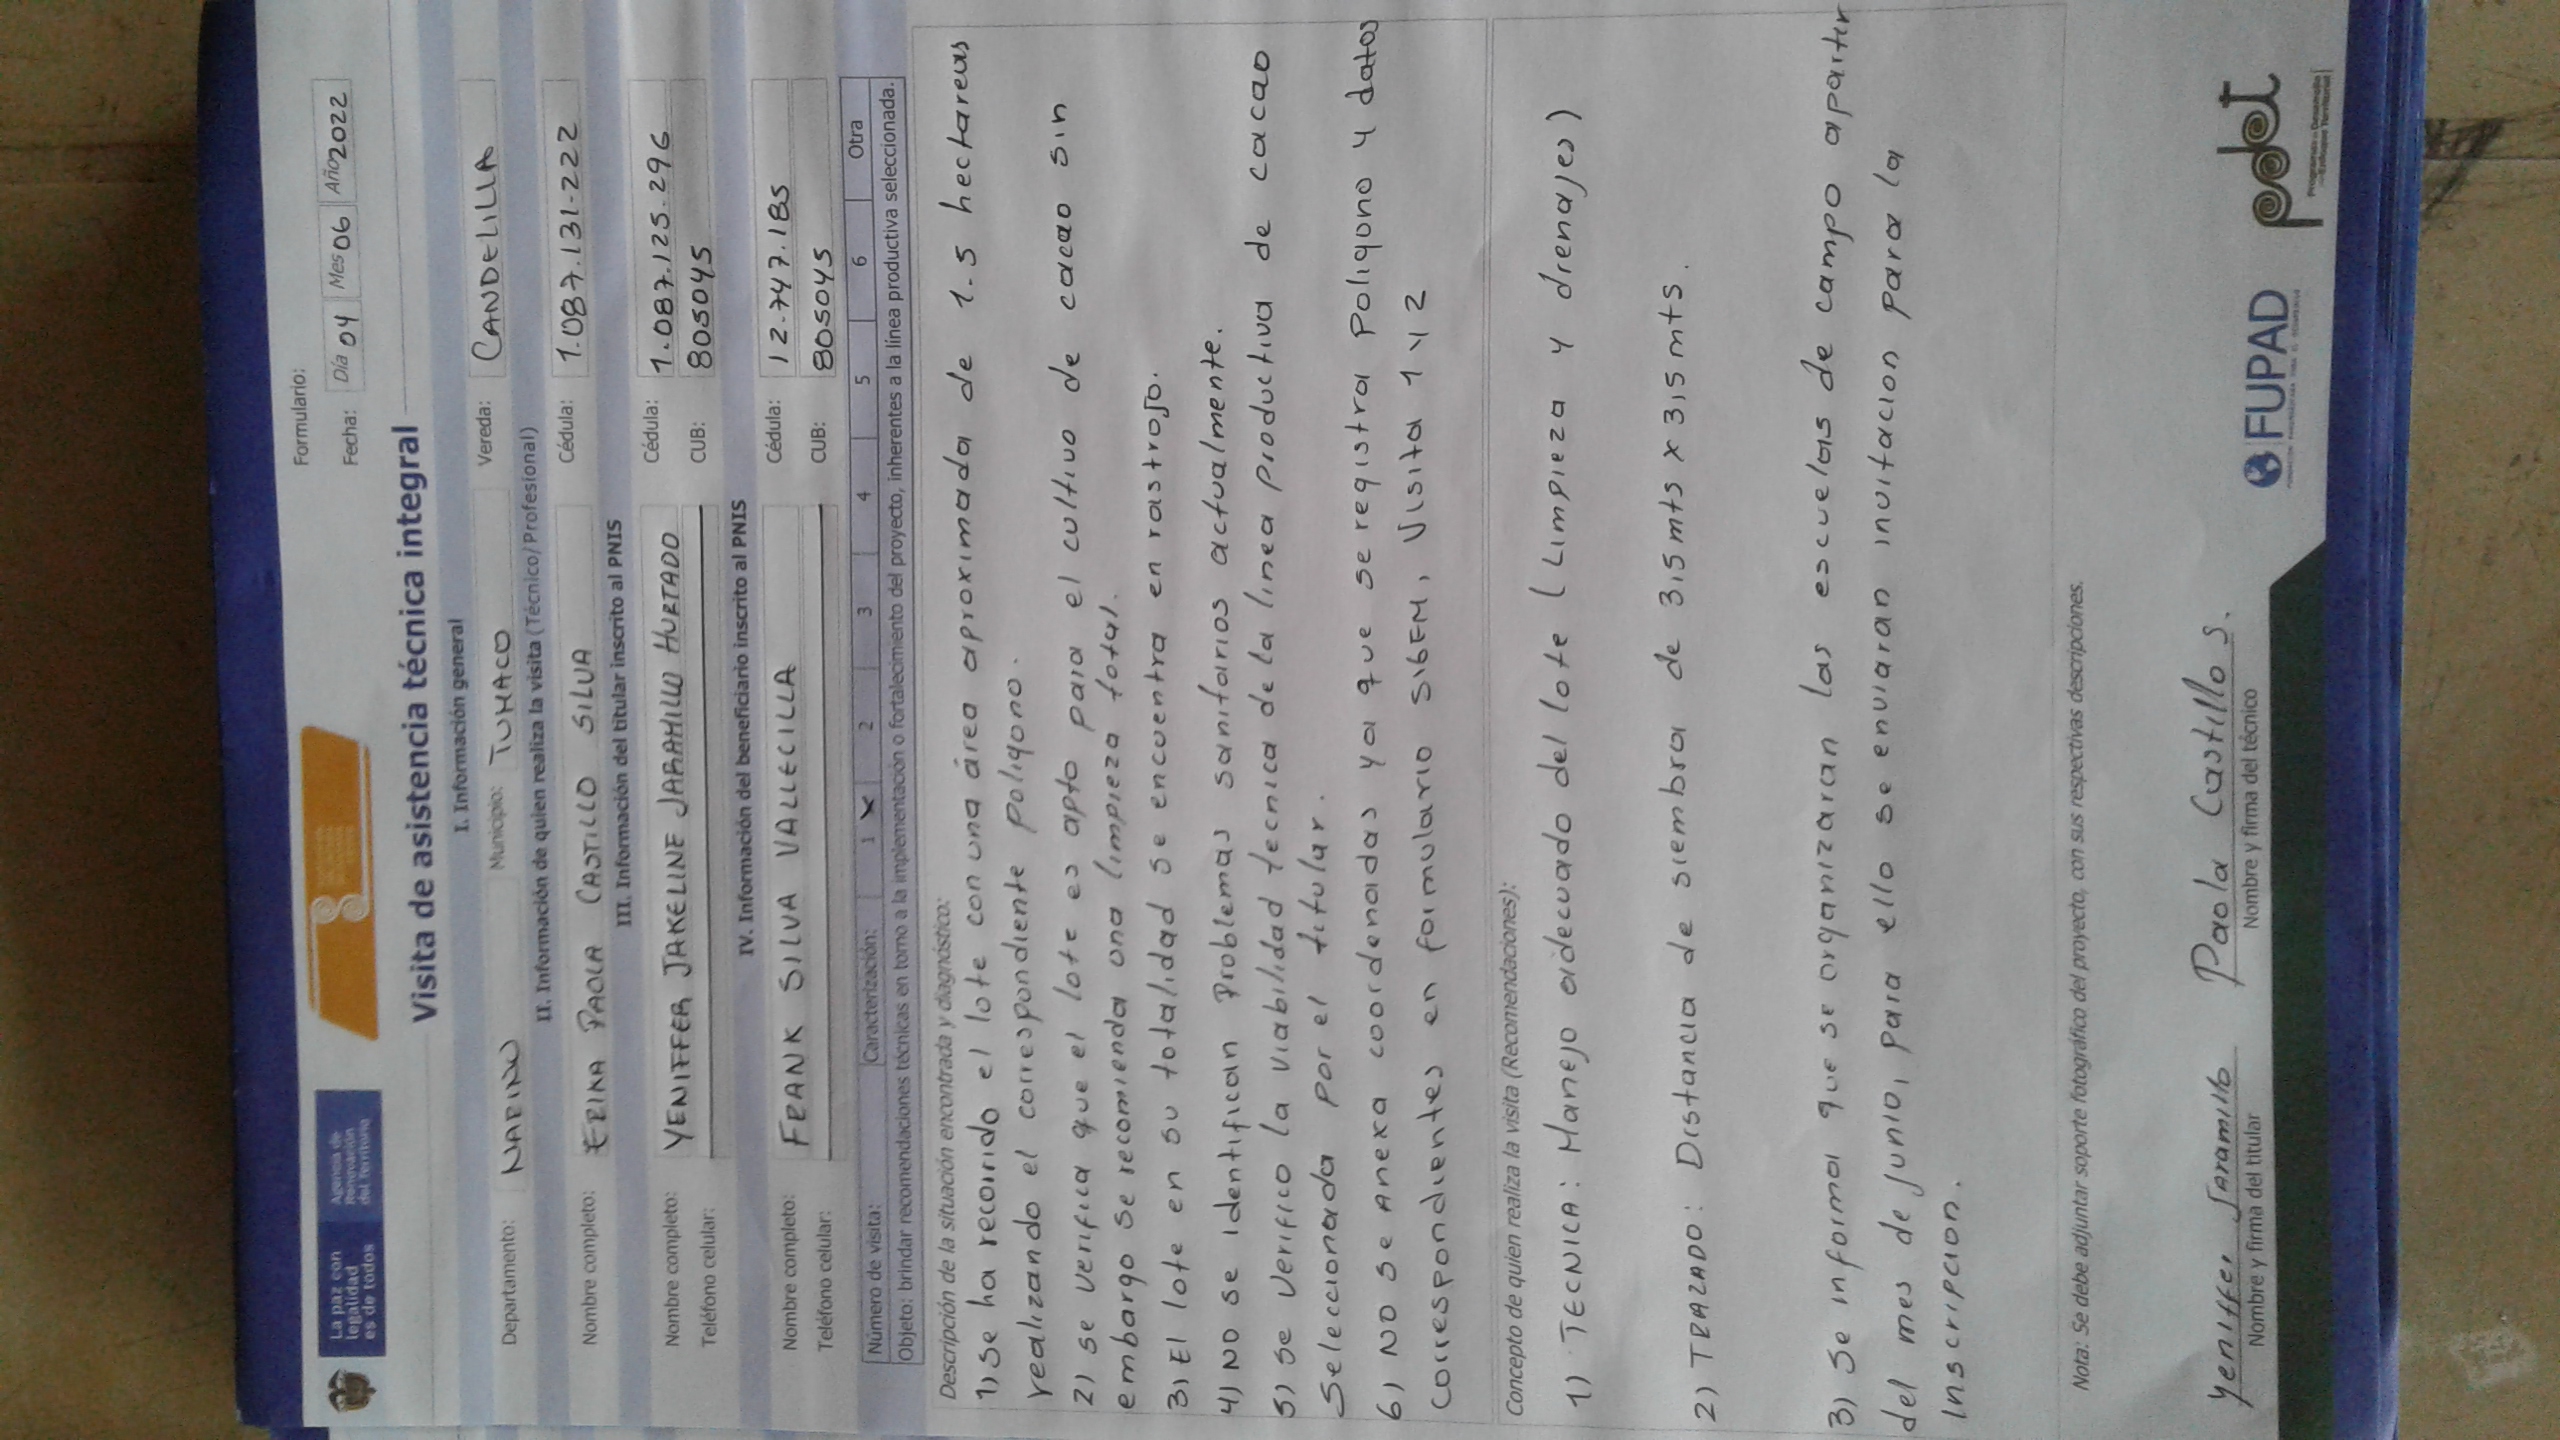 La paz con
legalidad
es de todos
Agencia de
Renovación
del Territorio
Formulario:
Fecha: Día 04 Mes 06 Año 2022
Visita de asistencia técnica integral
I. Información general
Departamento: NARIÑO Municipio: TUMACO Vereda: CANDELILLA
II. Información de quien realiza la visita (Técnico/Profesional)
Nombre completo: ERIKA PAOLA CASTILLO SILVA Cédula: 1.087.131-222
III. Información del titular inscrito al PNIS
Nombre completo: YENIFFER JAKELINE JARAMILLO HURTADO Cédula: 1.087.125.296
Teléfono celular: CUB: 805045
IV. Información del beneficiario inscrito al PNIS
Nombre completo: FRANK SILVA VALLECILLA Cédula: 12.747.185
Teléfono celular: CUB: 805045
Número de visita: Caracterización: 1 X 2 3 4 5 6 Otra
Objeto: brindar recomendaciones técnicas en torno a la implementación o fortalecimiento del proyecto, inherentes a la línea productiva seleccionada.
Descripción de la situación encontrada y diagnóstico:
1) Se ha recorrido el lote con una área aproximada de 1.5 hectareas
realizando el correspondiente poligono.
2) se verifica que el lote es apto para el cultivo de cacao sin
embargo se recomienda una limpieza total.
3) El lote en su totalidad se encuentra en rastrojo.
4) NO se identifican Problemas sanitarios actualmente.
5) se verifico la viabilidad tecnica de la linea productiva de cacao
seleccionada por el titular.
6) NO se anexa coordenadas ya que se registra Poligono y datos
correspondientes en formulario SIGEM, Visita 1 y 2
Concepto de quien realiza la visita (Recomendaciones):
1) TECNICA: Manejo adecuado del lote (Limpieza y drenajes)
2) TRAZADO: Distancia de siembra de 3,5 mts x 3,5 mts.
3) Se informa que se organizaran las escuelas de campo apartir
del mes de Junio, para ello se enviaran invitacion para la
Inscripcion.
Nota: Se debe adjuntar soporte fotográfico del proyecto, con sus respectivas descripciones.
Yeniffer Jaramillo Paola Castillo S.
Nombre y firma del titular Nombre y firma del técnico
FUPAD
pdet